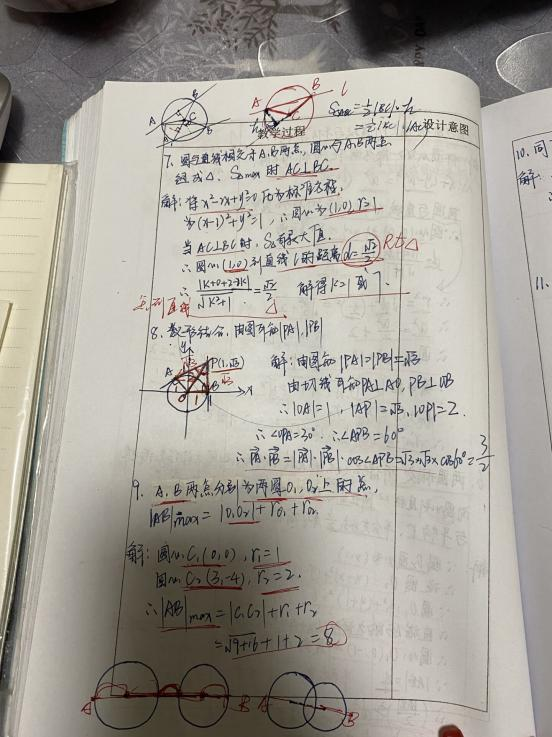 A B C A B l
S△ABC = 1/2|BC|·h
教学过程 = 1/2|BC|·|AC| 设计意图
7. 圆与直线相交于A、B两点, 圆心与A、B两点
组成△. S△max 时 AC⊥BC.
解: 将x²-2x+y²=0 化为标准方程.
为(x-1)²+y²=1, ∴圆心为(1,0), r=1
当AC⊥BC时, S△有最大值.
∴圆心(1,0)到直线l的距离 d=√2/2 Rt△
∴ |k+0+2-2k|/√(k²+1) = √2/2 解得k=1或7.
8. 数形结合, 由图可知|PA|, |PB|
y A P(1,√3) √3 √3 B x
解: 由图知|PA|=|PB|=√3
由切线可知PA⊥AO, PB⊥OB
∴|OA|=1, |AP|=√3, |OP|=2.
∴∠OPA=30° ∴∠APB=60°
∴PA·PB=|PA|·|PB|·cos∠APB=√3×√3×cos60°=3/2
9. A、B两点分别为两圆O₁、O₂上的点,
|AB|max = |O₁O₂|+r₁+r₂.
解: 圆心C₁(0,0), r₁=1
圆心C₂(3,-4), r₂=2.
∴|AB|max = |C₁C₂|+r₁+r₂
=√(9+16)+1+2=8
A B A B
10. 同
解:
11.